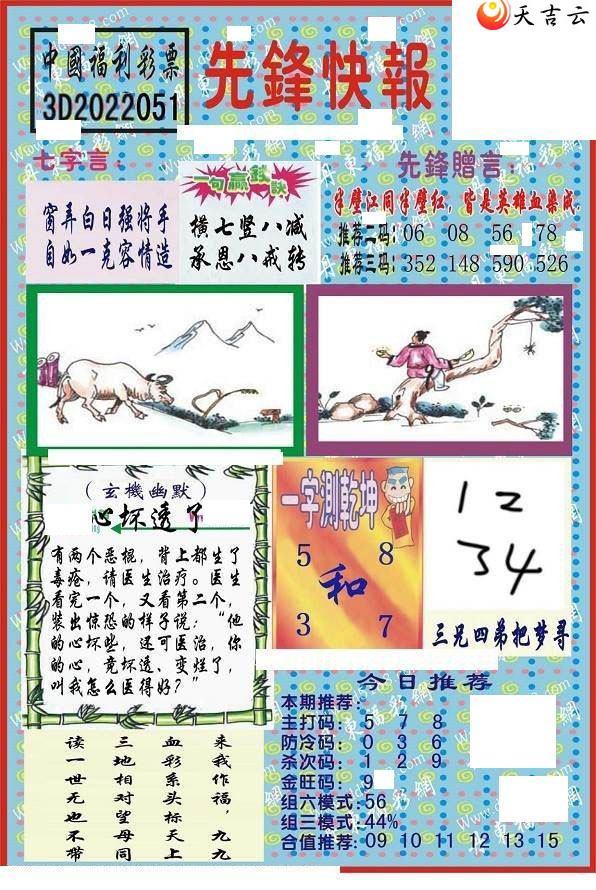 天吉云
中國福利彩票
3D2022051
先鋒快報
七字言：
窗弄白日强将手
自如一克容情造
一句赢錢訣
横七竖八减
承恩八戒转
先鋒贈言：
半壁江同半壁红，皆是英雄血染成.
推荐二码：06 08 56 78
推荐三码：352 148 590 526
（玄機幽默）
心坏透了
有两个恶棍，背上都生了
毒疮，请医生治疗。医生
看完一个，又看第二个，
装出惊恐的样子说：“他
的心坏些，还可医治，你
的心，竟坏透、变烂了，
叫我怎么医得好？”
一字測乾坤
5 8
和
3 7
12
34
三兄四弟把梦寻
今日推荐
本期推荐：
主打码：5 7 8
防冷码：0 3 6
杀次码：1 2 9
金旺码：9
组六模式：56
组三模式：44%
合值推荐：09 10 11 12 13 15
来我作福，九九
血彩系头标天上
三地相对望母同
读一世无也不带